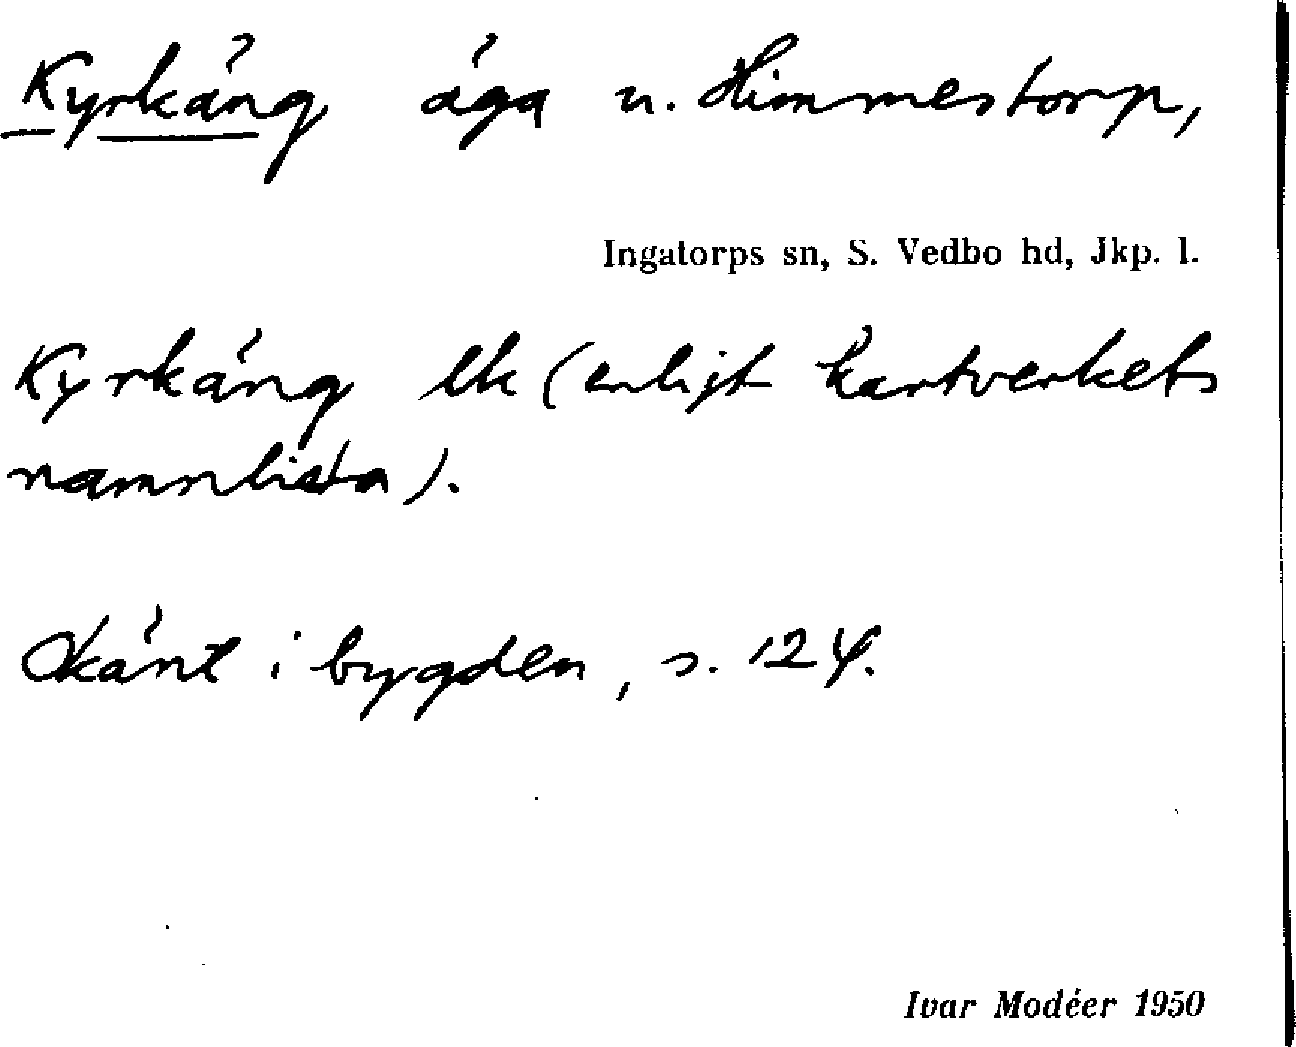 Kyrkäng äga u. Himmestorp,
Ingatorps sn, S. Vedbo hd, Jkp. l.
Kyrkäng ek (enligt kartverkets
namnlista).
Okänt i bygden, s. 124.
Ivar Modéer 1950